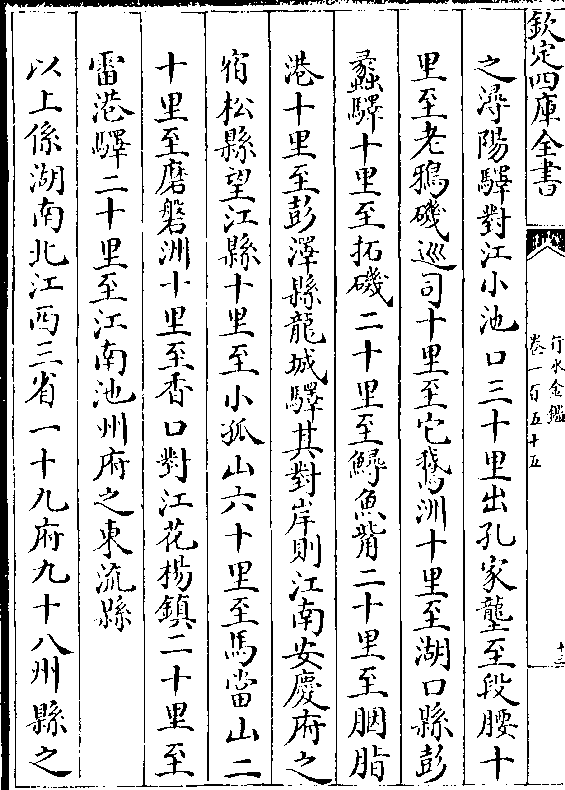 欽定四庫全書
行水金鑑
卷一百五十五
十三
之潯陽驛對江小池口三十里出孔家壟至段腰十
里至老鴉磯巡司十里至它鵝洲十里至湖口縣彭
蠡驛十里至拓磯二十里至鱘魚觜二十里至胭脂
港十里至彭澤縣龍城驛其對岸則江南安慶府之
宿松縣望江縣十里至小孤山六十里至馬當山二
十里至磨盤洲十里至香口對江花楊鎮二十里至
雷港驛二十里至江南池州府之東流縣
以上係湖南北江西三省一十九府九十八州縣之